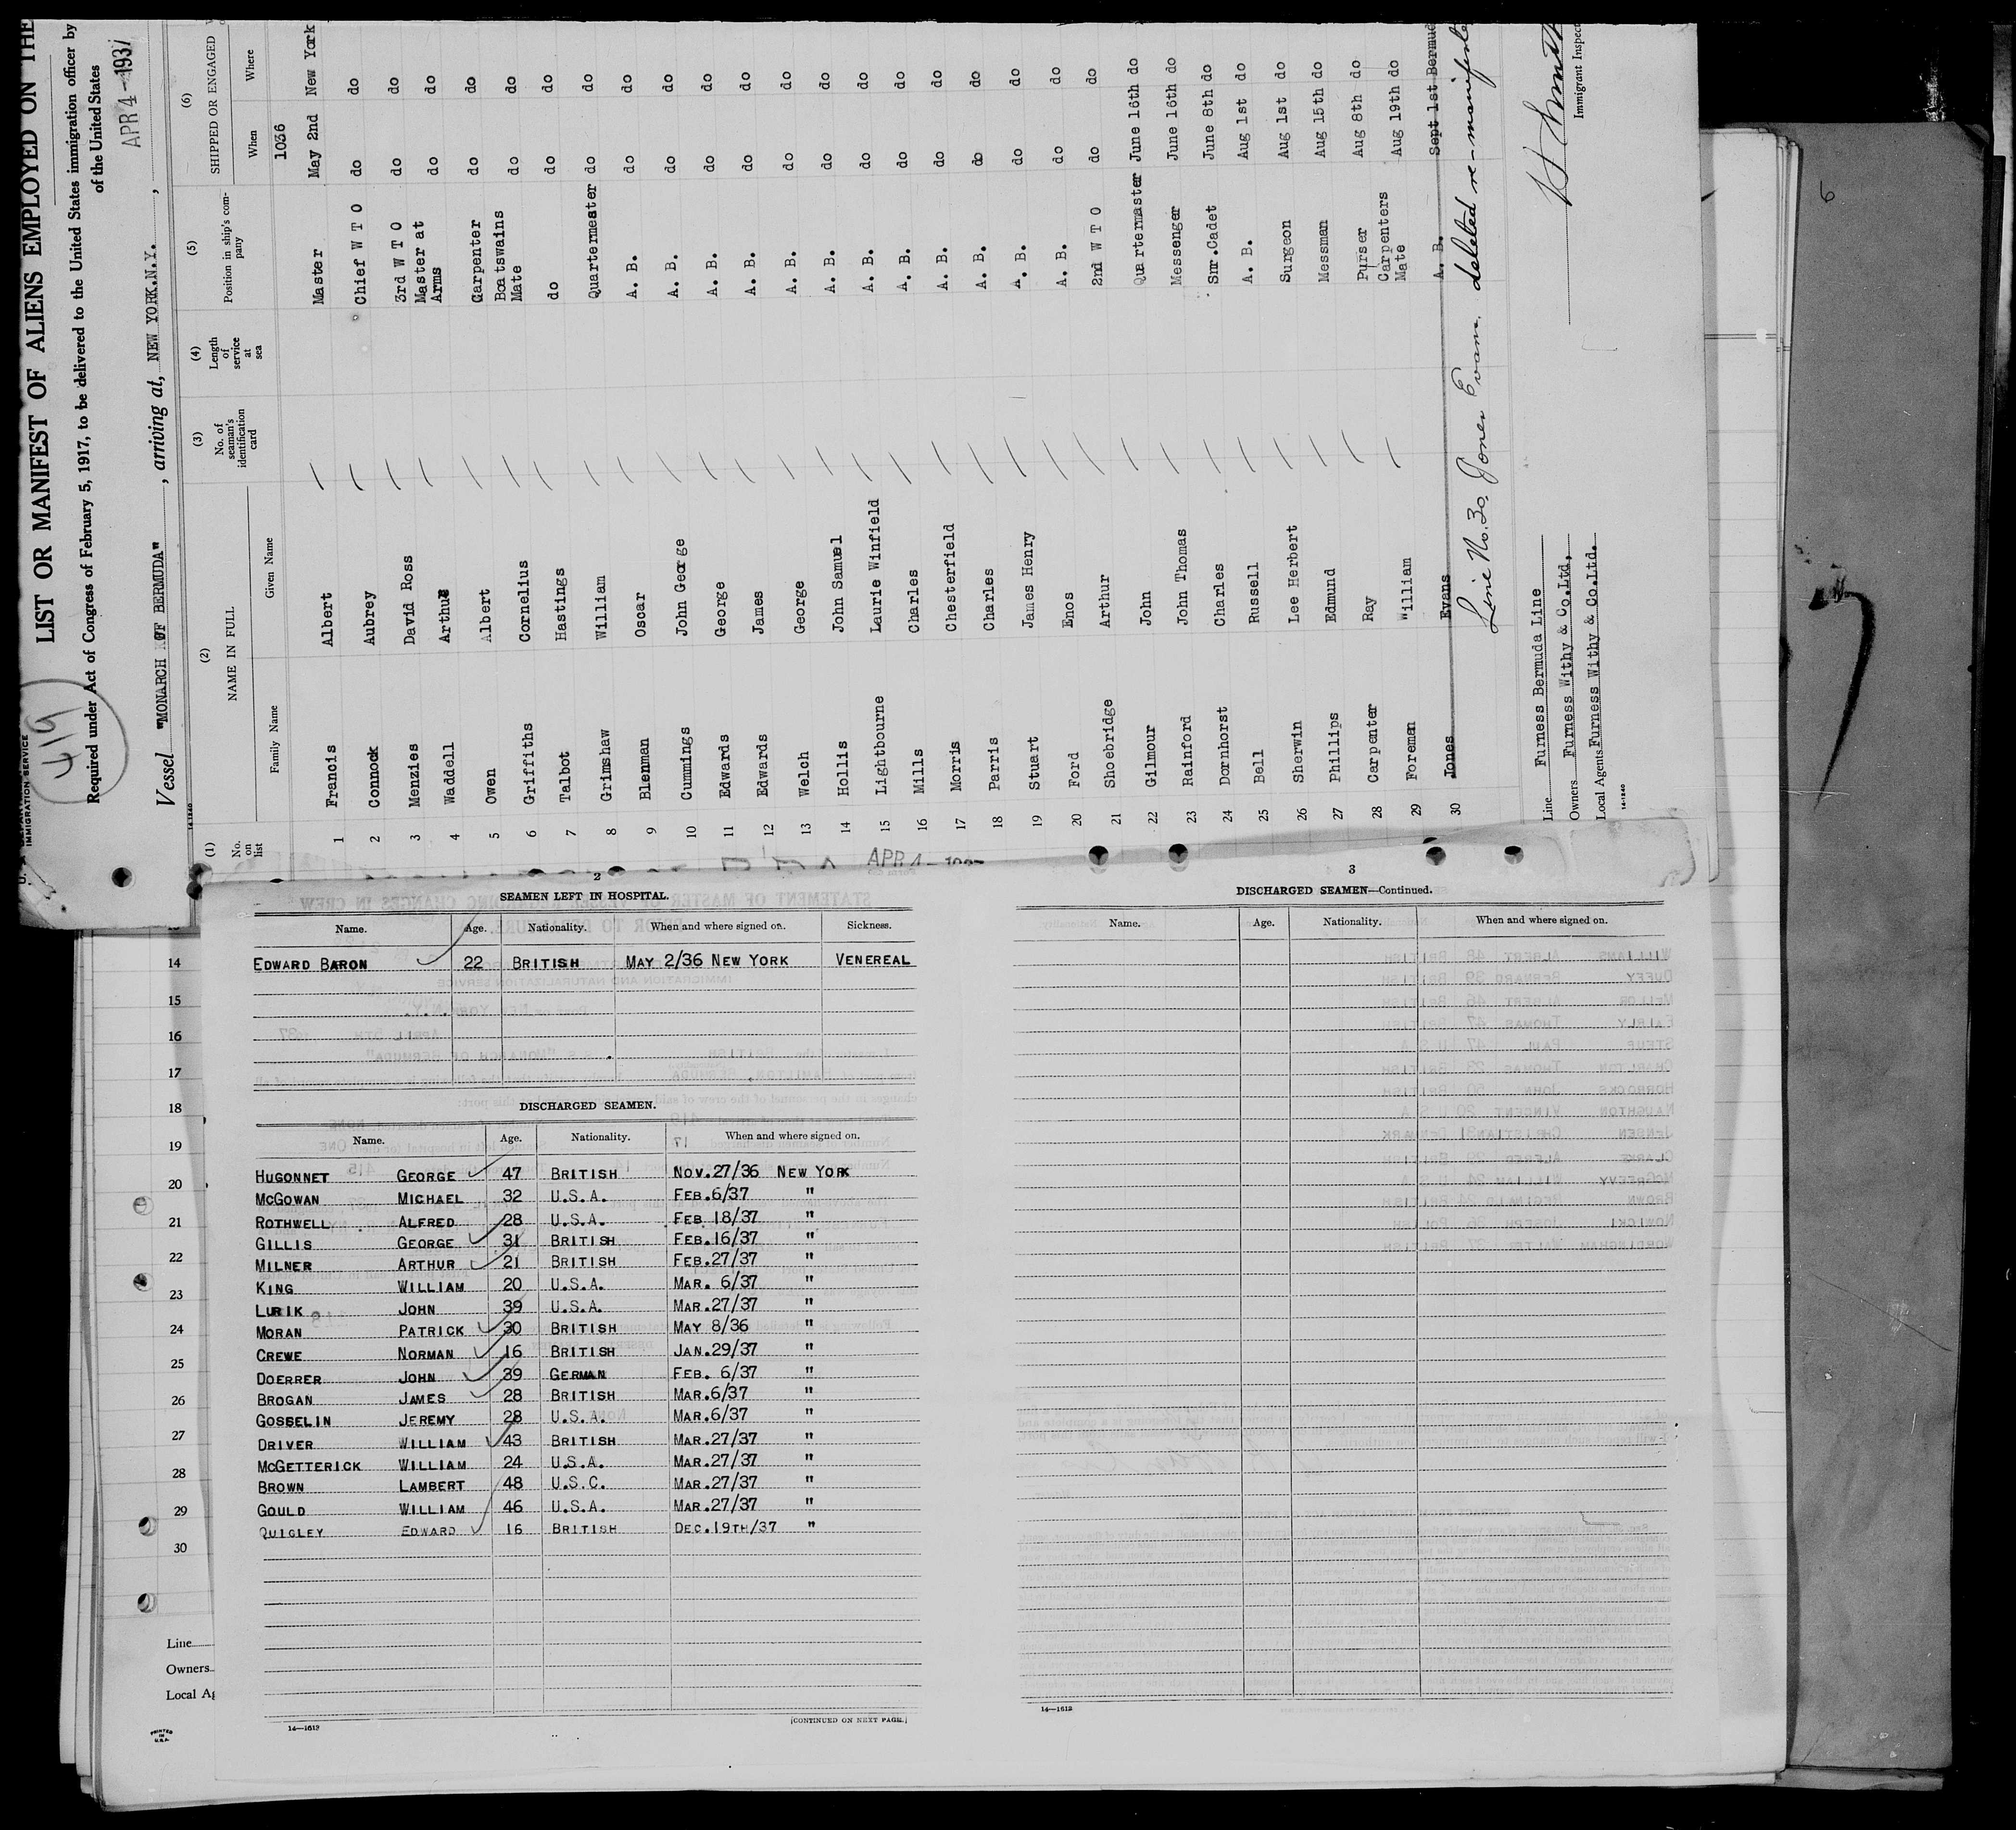 U. S. DEPARTMENT
IMMIGRATION SERVICE
419
LIST OR MANIFEST OF ALIENS EMPLOYED ON THE
Required under Act of Congress of February 5, 1917, to be delivered to the United States immigration officer by
of the United States
Vessel "MONARCH OF BERMUDA", arriving at, NEW YORK.N.Y., APR 4-1937
14-1240
(1) (2) (3) (4) (5) (6)
No. on list NAME IN FULL No. of seaman's identification card Length of service at sea Position in ship's company SHIPPED OR ENGAGED
Family Name Given Name When Where
1036
1 Francis Albert Master May 2nd New York
2 Connock Aubrey Chief W T O do do
3 Menzies David Ross 3rd W T O do do
4 Waddell Arthur Master at Arms do do
5 Owen Albert Carpenter do do
6 Griffiths Cornelius Boatswains Mate do do
7 Talbot Hastings do do do
8 Grimshaw William Quartermester do do
9 Blenman Oscar A. B. do do
10 Cummings John George A. B. do do
11 Edwards George A. B. do do
12 Edwards James A. B. do do
13 Welch George A. B. do do
14 Hollis John Samuel A. B. do do
15 Lightbourne Laurie Winfield A. B. do do
16 Mills Charles A. B. do do
17 Morris Chesterfield A. B. do do
18 Parris Charles A. B. do do
19 Stuart James Henry A. B. do do
20 Ford Enos A. B. do do
21 Shoebridge Arthur 2nd W T O do do
22 Gilmour John Quartermaster June 16th do
23 Rainford John Thomas Messenger June 16th do
24 Dornhorst Charles Snr.Cadet June 8th do
25 Bell Russell A. B. Aug 1st do
26 Sherwin Lee Herbert Surgeon Aug 1st do
27 Phillips Edmund Messman Aug 15th do
28 Carpenter Ray Purser Aug 8th do
29 Foreman William Carpenters Mate Aug 19th do
30 Jones Evans A. B. Sept 1st Bermud
Line No. 30. Jones Evans. deleted re-manifested
Line Furness Bermuda Line
Owners Furness Withy & Co.Ltd,
Local Agents Furness Withy & Co.Ltd.
14-1240
Immigrant Inspec
6
APR 4-
2
SEAMEN LEFT IN HOSPITAL.
Name. Age. Nationality. When and where signed on. Sickness.
EDWARD BARON 22 BRITISH MAY 2/36 NEW YORK VENEREAL
DISCHARGED SEAMEN.
Name. Age. Nationality. When and where signed on.
HUGONNET GEORGE 47 BRITISH NOV.27/36 NEW YORK
MCGOWAN MICHAEL 32 U.S.A. FEB.6/37 "
ROTHWELL ALFRED 28 U.S.A. FEB 18/37 "
GILLIS GEORGE 31 BRITISH FEB.16/37 "
MILNER ARTHUR 21 BRITISH FEB.27/37 "
KING WILLIAM 20 U.S.A. MAR. 6/37 "
LURIK JOHN 39 U.S.A. MAR.27/37 "
MORAN PATRICK 30 BRITISH MAY 8/36 "
CREWE NORMAN 16 BRITISH JAN.29/37 "
DOERRER JOHN 39 GERMAN FEB. 6/37 "
BROGAN JAMES 28 BRITISH MAR.6/37 "
GOSSELIN JEREMY 28 U.S.A. MAR.6/37 "
DRIVER WILLIAM 43 BRITISH MAR.27/37 "
MCGETTERICK WILLIAM 24 U.S.A. MAR.27/37 "
BROWN LAMBERT 48 U.S.C. MAR.27/37 "
GOULD WILLIAM 46 U.S.A. MAR.27/37 "
QUIGLEY EDWARD 16 BRITISH DEC.19TH/37 "
14—1613 [CONTINUED ON NEXT PAGE.]
3
DISCHARGED SEAMEN—Continued.
Name. Age. Nationality. When and where signed on.
14—1613
14
15
16
17
18
19
20
21
22
23
24
25
26
27
28
29
30
Line
Owners
Local Ag
PRINTED IN U.S.A.